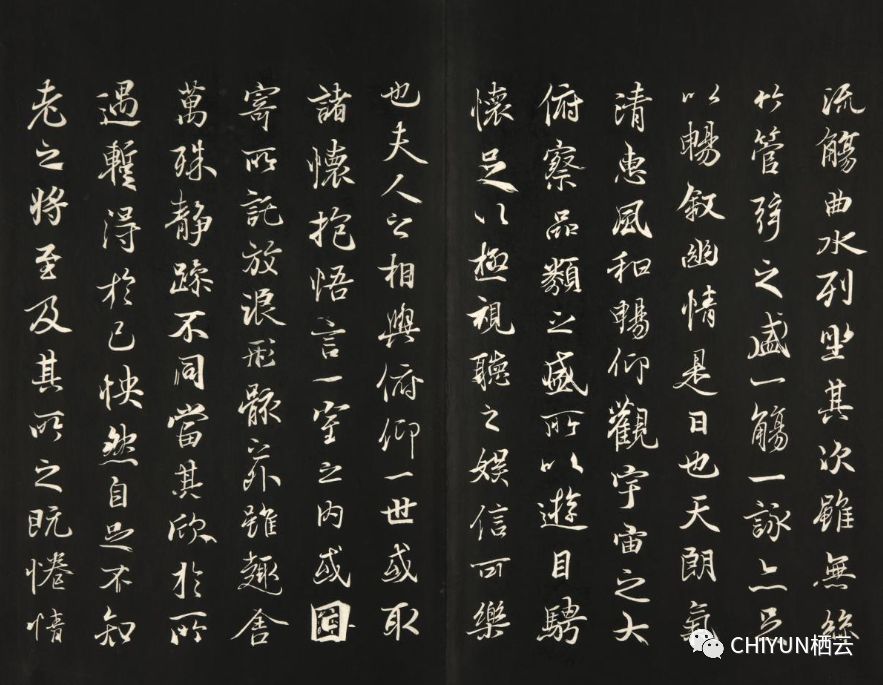 流觴曲水列坐其次雖無絲
竹管弦之盛一觴一詠亦足
以暢叙幽情是日也天朗氣
清惠風和暢仰觀宇宙之大
俯察品類之盛所以遊目騁
懷足以極視聽之娛信可樂
也夫人之相與俯仰一世或取
諸懷抱悟言一室之内或因
寄所託放浪形骸之外雖趣舍
萬殊静躁不同當其欣於所
遇暫得於己怏然自足不知
老之將至及其所之既惓情
CHIYUN栖云